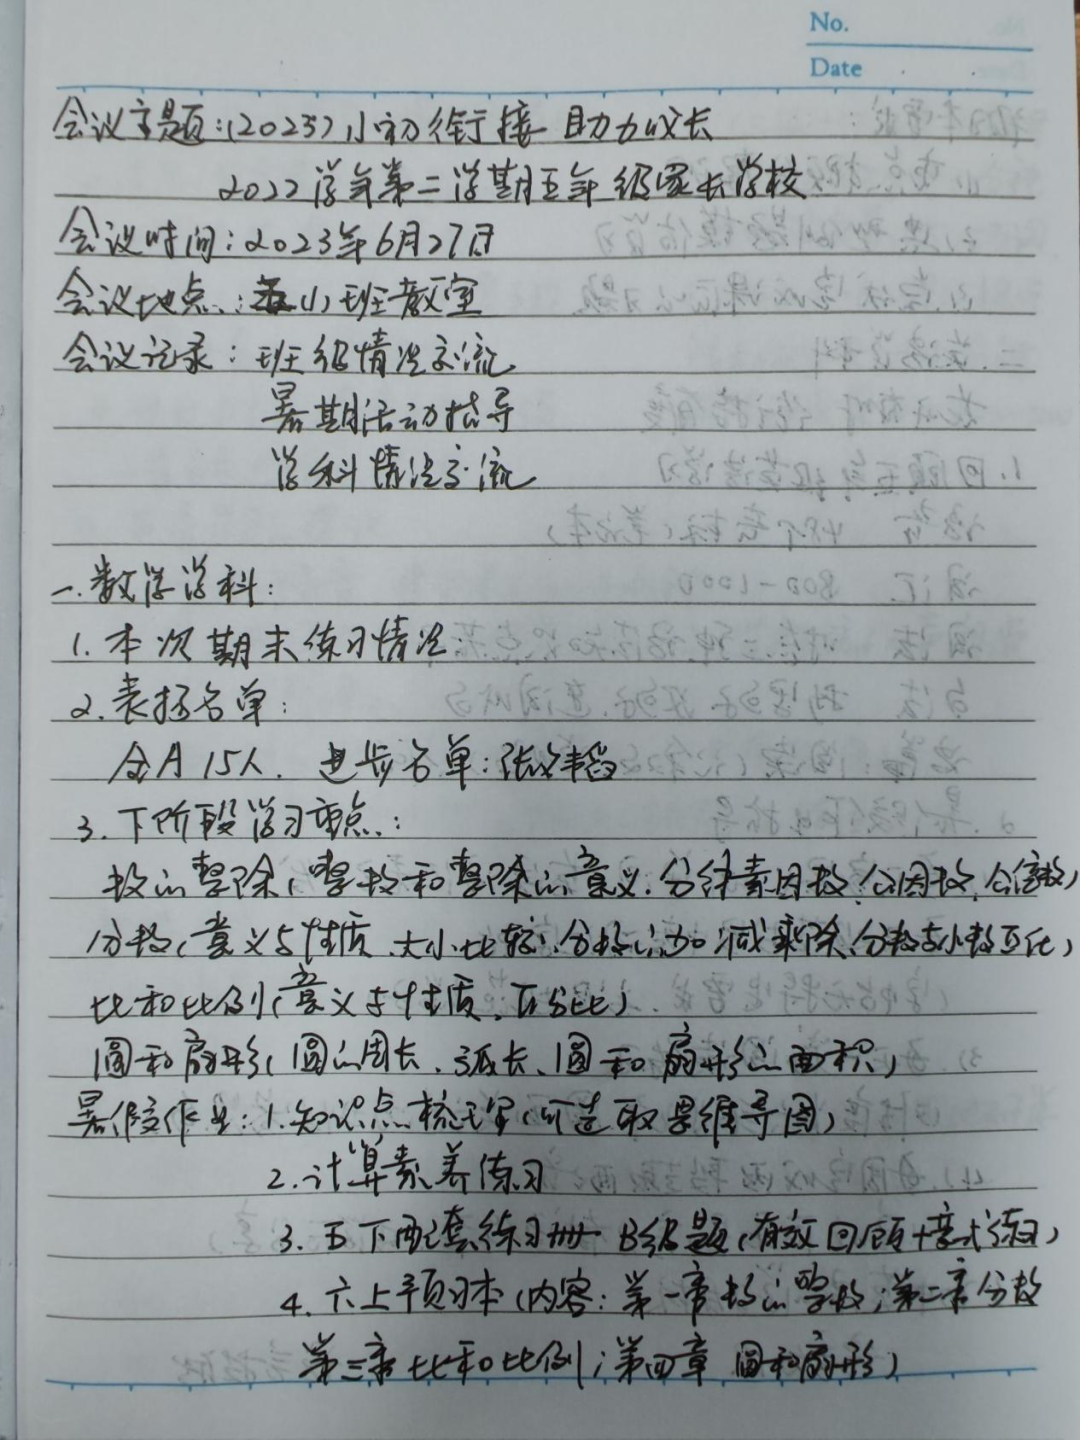 No.
Date
会议主题:(2023)小初衔接 助力成长
2022学年第二学期五年级家长学校
会议时间:2023年6月27日
会议地点:五(1)班教室
会议记录:班级情况交流
暑期活动指导
学科情况交流
一.数学学科:
1.本次期末练习情况
2.表扬名单:
全A 15人. 进步名单:张
3.下阶段学习重点:
数的整除(整数和整除的意义.分解素因数.公因数.公倍数)
分数(意义与性质.大小比较.分数的加减乘除.分数与小数互化)
比和比例(意义与性质.百分比)
圆和扇形(圆的周长.弧长.圆和扇形的面积)
暑假作业:1.知识点梳理(可选取思维导图)
2.计算素养练习
3.五下配套练习册 B级题(有效回顾+变式练习)
4.六上预习本(内容:第一章数的整数;第二章分数
第三章比和比例;第四章 圆和扇形)